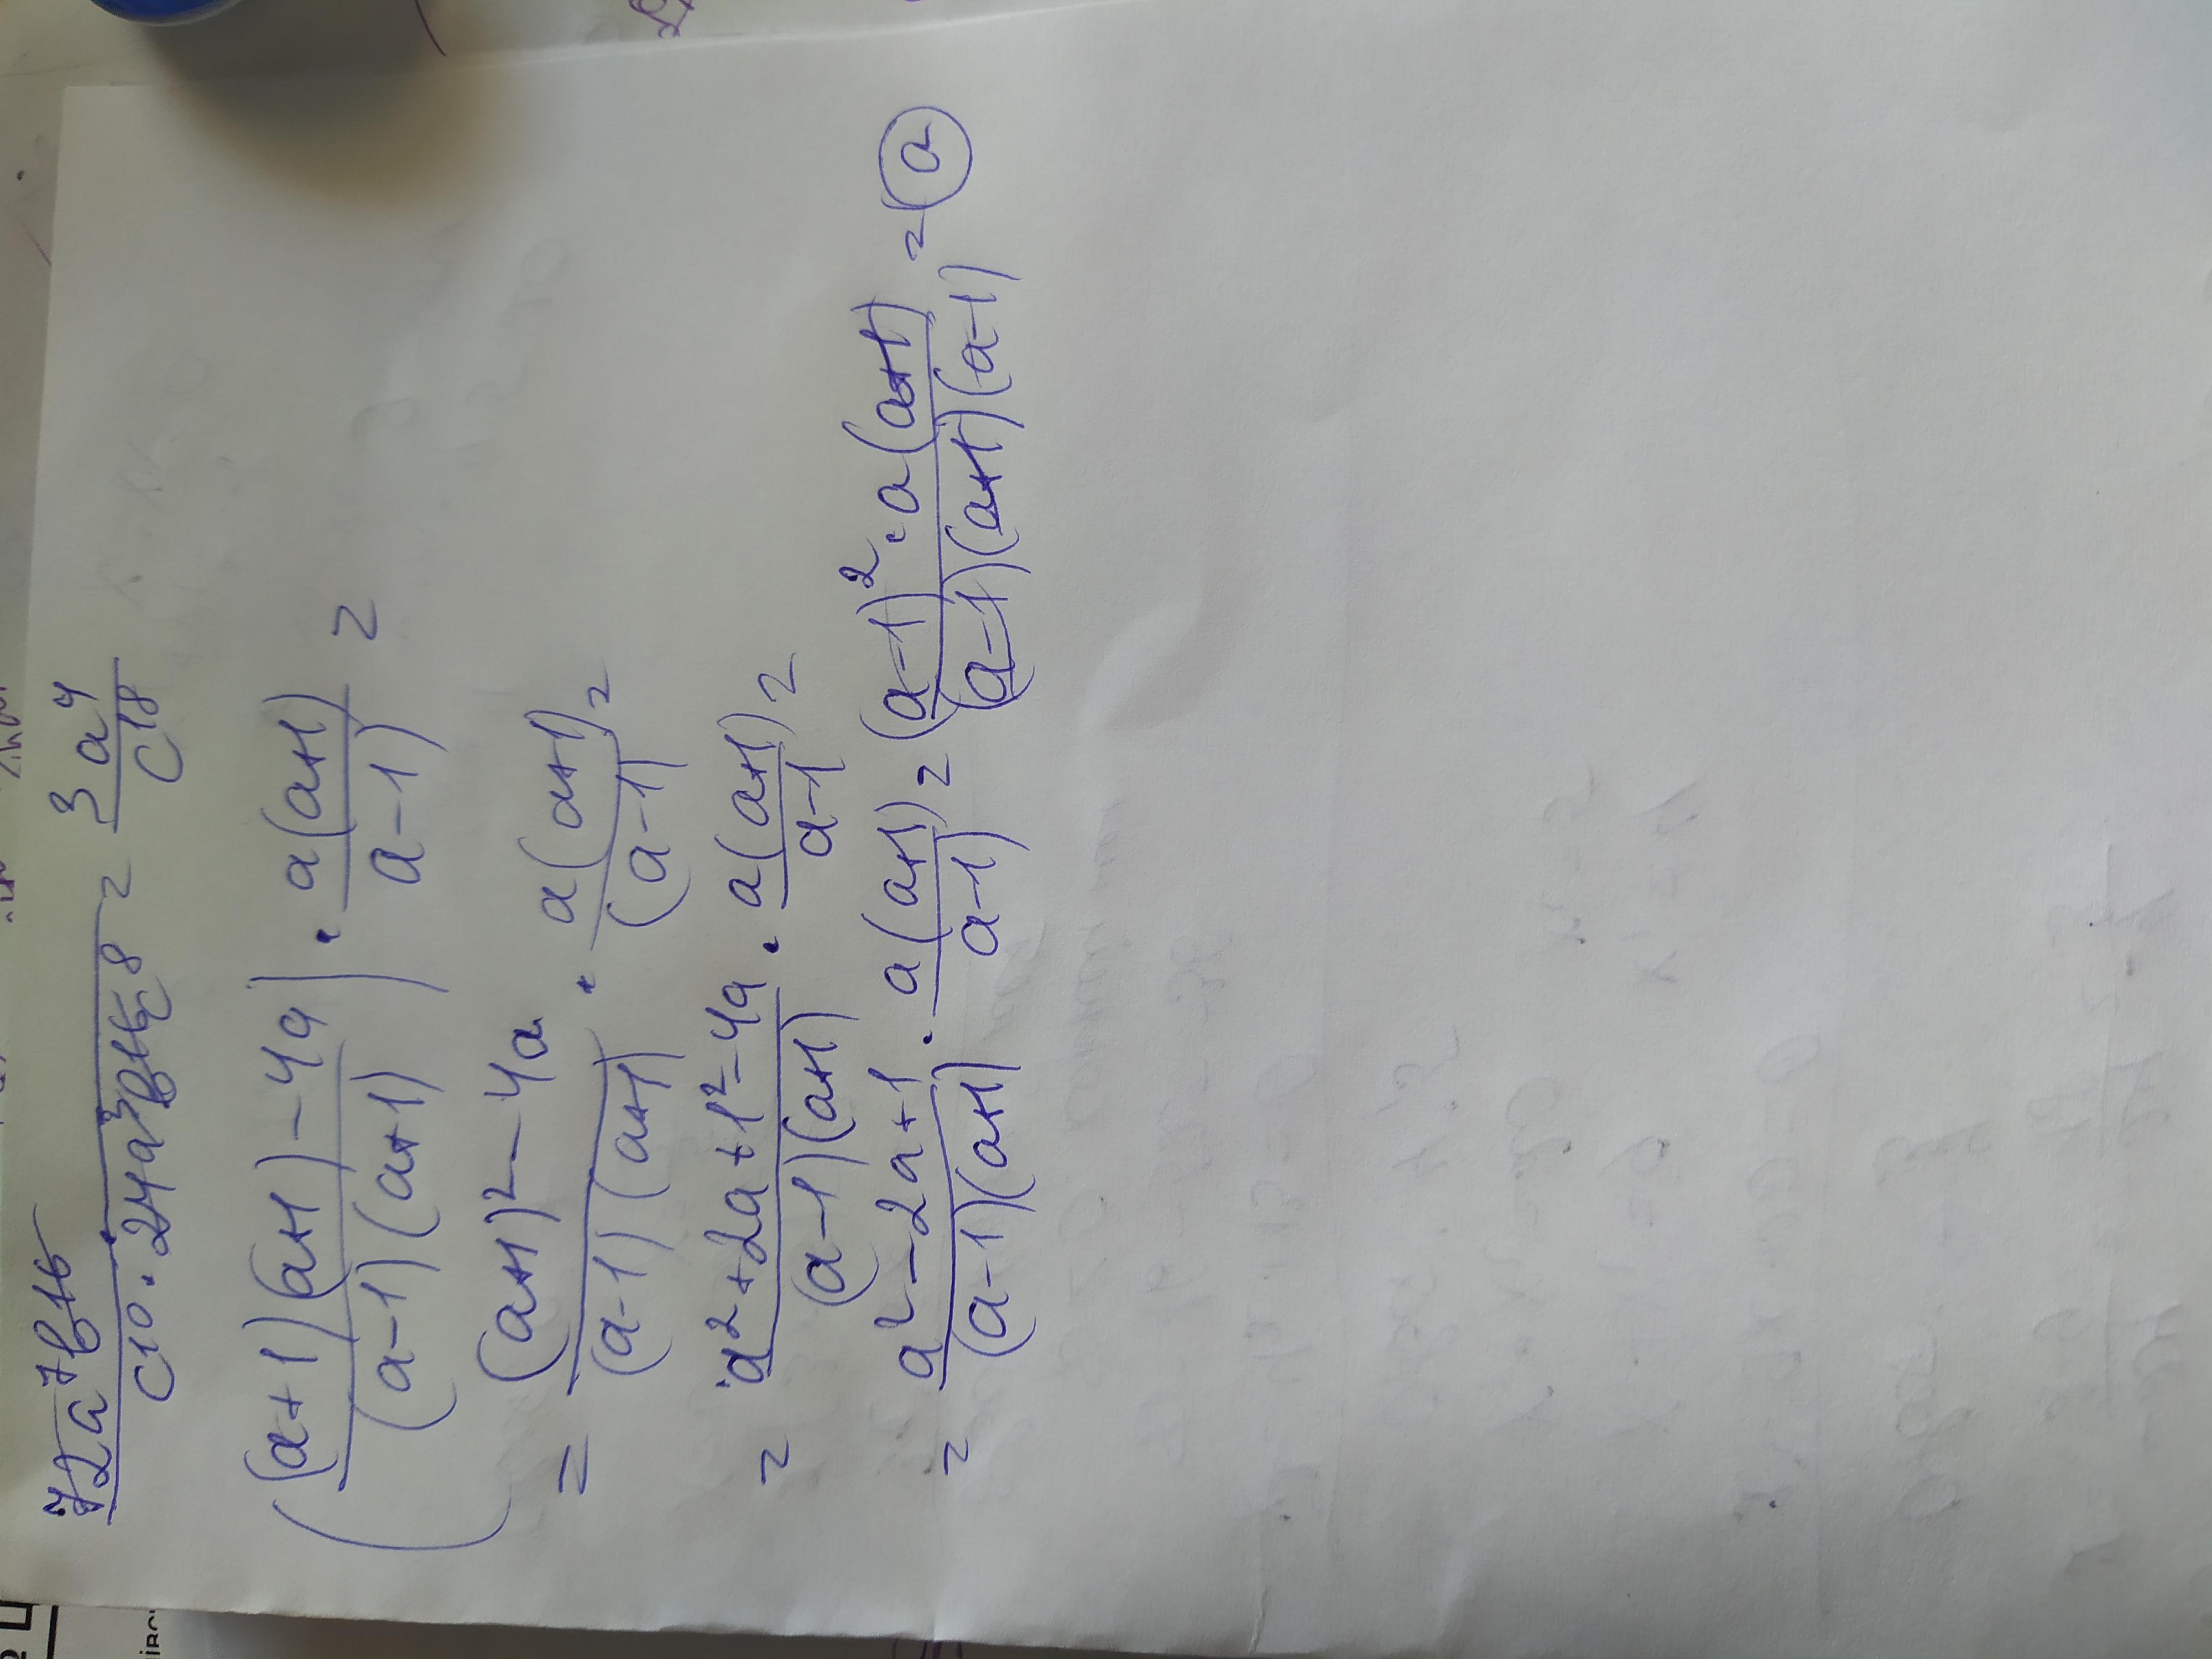 72a⁷b¹⁶ / c¹⁰ · 24a³b¹⁶c⁸ = 3a⁴ / c¹⁸
((a+1)(a+1) - 4a / (a-1)(a+1)) · a(a+1) / a-1) =
= (a+1)² - 4a / (a-1)(a+1) · a(a+1) / (a-1) =
= a² + 2a + 1² - 4a / (a-1)(a+1) · a(a+1) / a-1 =
= a² - 2a + 1 / (a-1)(a+1) · a(a+1) / a-1) = (a-1)² · a(a+1) / (a-1)(a+1)(a-1) = a